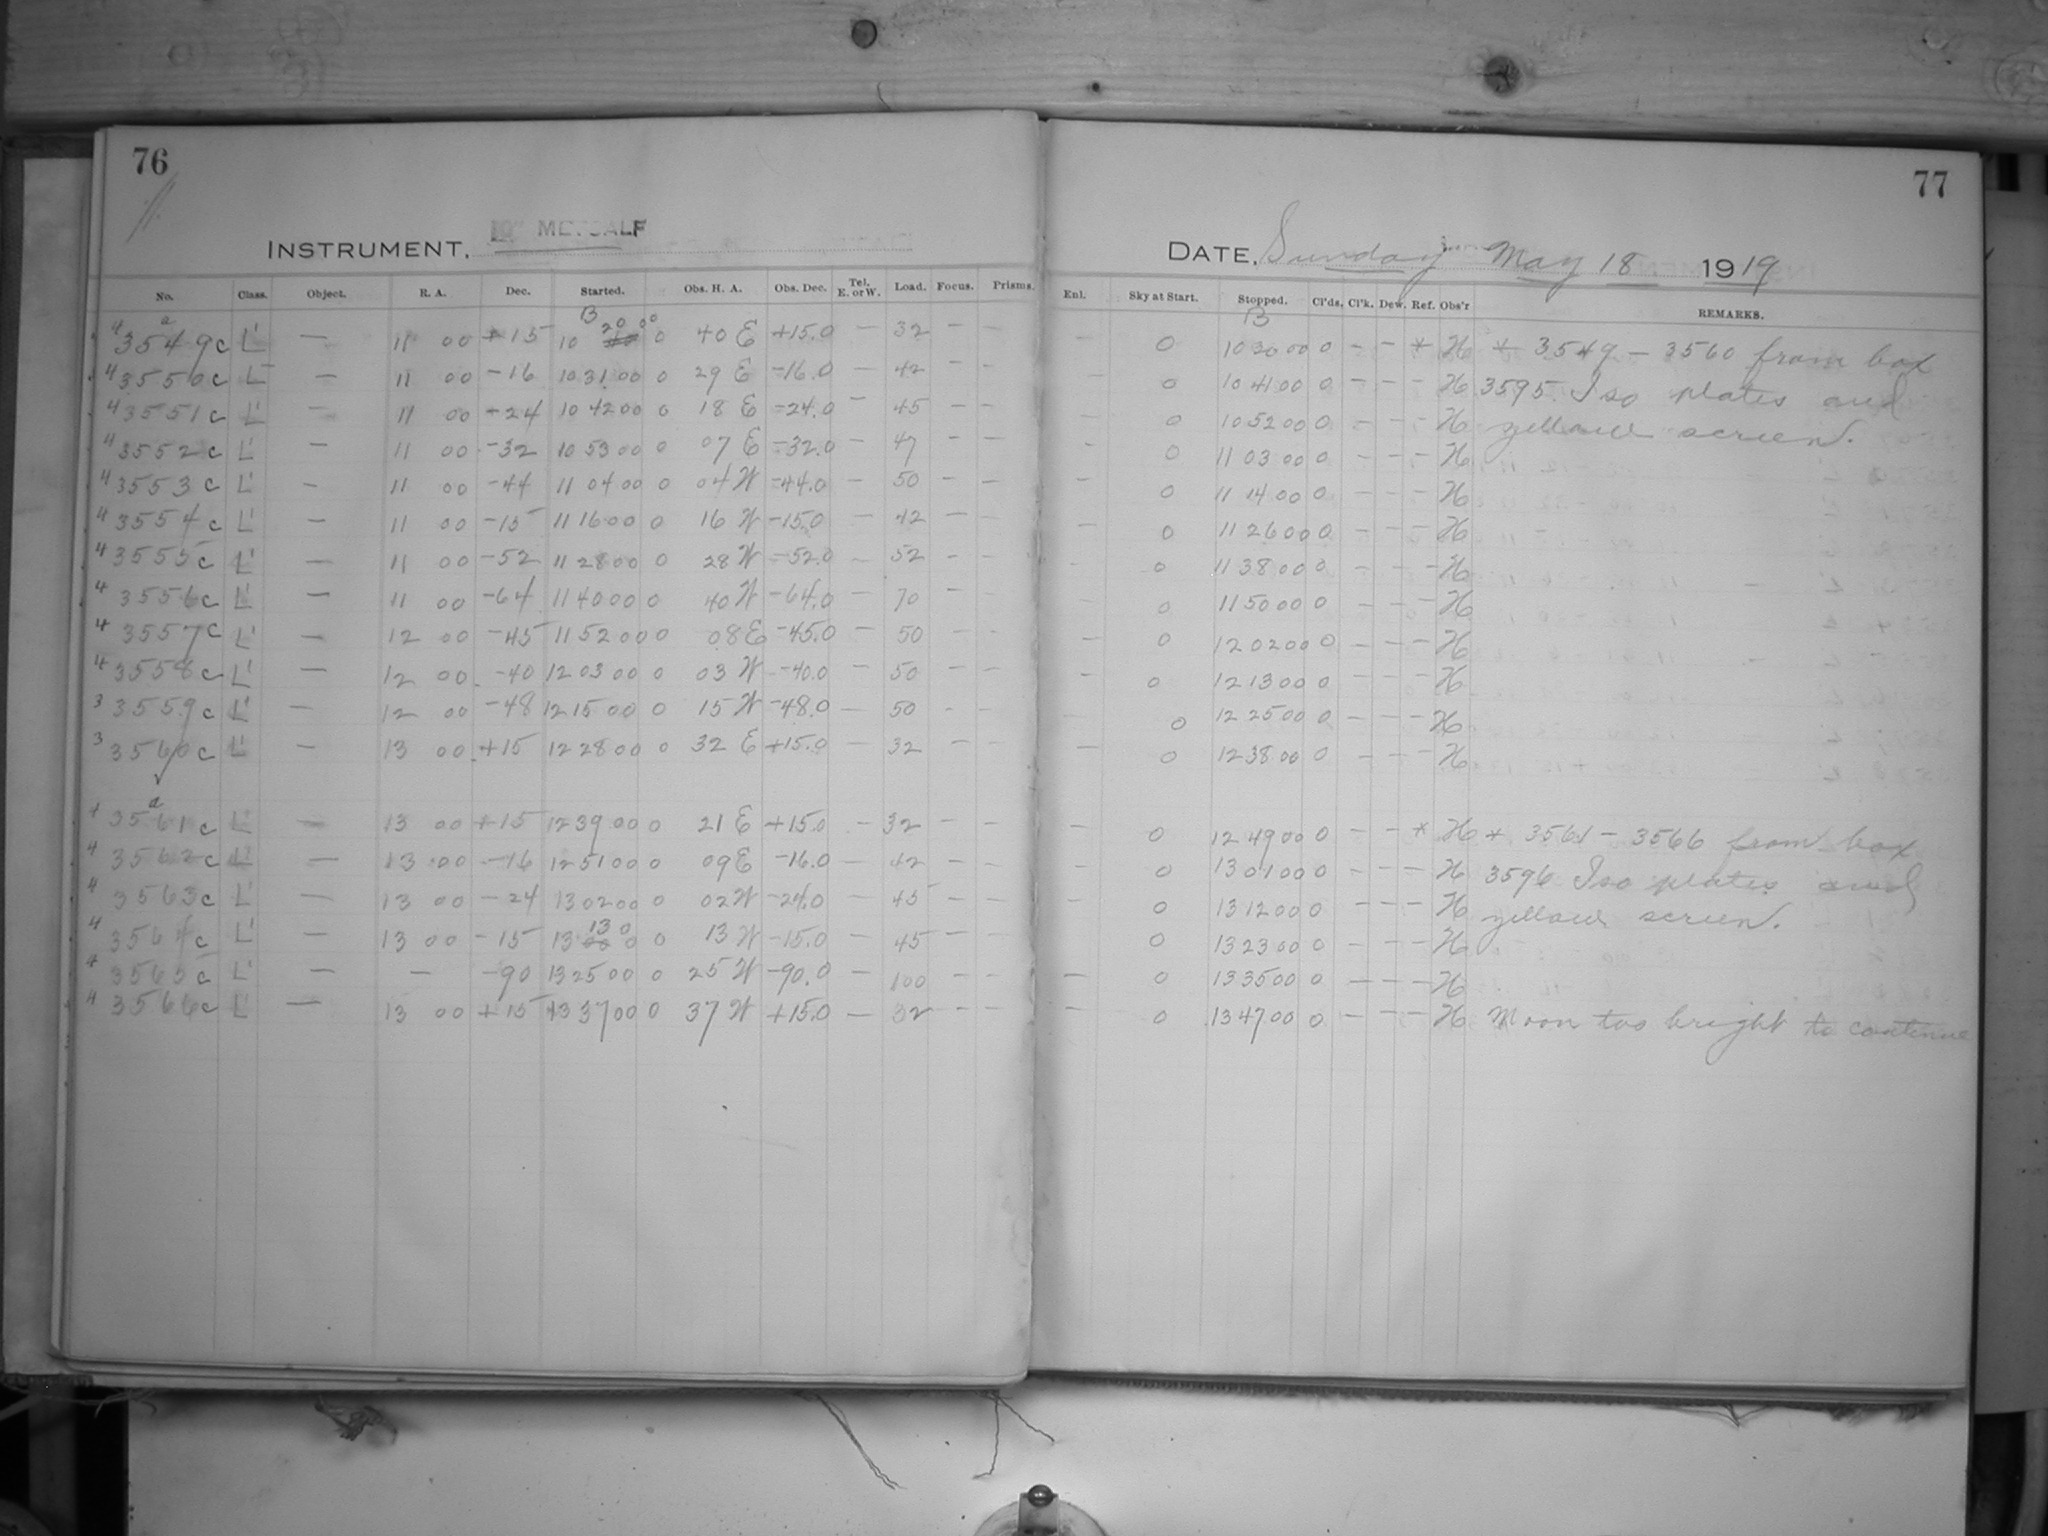 76
INSTRUMENT. 10" METCALF
No. Class. Object. R. A. Dec. Started. Obs. H. A. Obs. Dec. Tel. E. or W. Load. Focus. Prisms.
4 3549c a L' — 11 00 +15 B 10 20 00 0 40 E +15.0 — 32 — —
4 3550c L' — 11 00 -16 10 31 00 0 29 E -16.0 — 42 — —
4 3551c L' — 11 00 -24 10 42 00 0 18 E -24.0 — 45 — —
4 3552c L' — 11 00 -32 10 53 00 0 07 E -32.0 — 47 — —
4 3553c L' — 11 00 -44 11 04 00 0 04 W -44.0 — 50 — —
4 3554c L' — 11 00 -15 11 16 00 0 16 W -15.0 — 42 — —
4 3555c L' — 11 00 -52 11 28 00 0 28 W -52.0 — 52 — —
4 3556c L' — 11 00 -64 11 40 00 0 40 W -64.0 — 70 — —
4 3557c L' — 12 00 -45 11 52 00 0 08 E -45.0 — 50 — —
4 3558c L' — 12 00 -40 12 03 00 0 03 W -40.0 — 50 — —
3 3559c L' — 12 00 -48 12 15 00 0 15 W -48.0 — 50 — —
3 3560c L' — 13 00 +15 12 28 00 0 32 E +15.0 — 32 — —
4 3561c a L' — 13 00 +15 12 39 00 0 21 E +15.0 — 32 — —
4 3562c L' — 13 00 -16 12 51 00 0 09 E -16.0 — 42 — —
4 3563c L' — 13 00 -24 13 02 00 0 02 W -24.0 — 45 — —
4 3564c L' — 13 00 -15 13 13 00 0 13 W -15.0 — 45 — —
4 3565c L' — — -90 13 25 00 0 25 W -90.0 — 100 — —
4 3566c L' — 13 00 +15 13 37 00 0 37 W +15.0 — 32 — —
77
DATE. Sunday May 18 1919
Enl. Sky at Start. Stopped. Cl'ds. Cl'k. Dew. Ref. Obs'r REMARKS.
— 0 B 10 30 00 0 — — * H * 3549 — 3560 from box
— 0 10 41 00 0 — — — H 3595. Iso plates and
— 0 10 52 00 0 — — — H yellow screen.
— 0 11 03 00 0 — — — H
— 0 11 14 00 0 — — — H
— 0 11 26 00 0 — — — H
— 0 11 38 00 0 — — — H
— 0 11 50 00 0 — — — H
— 0 12 02 00 0 — — — H
— 0 12 13 00 0 — — — H
— 0 12 25 00 0 — — — H
— 0 12 38 00 0 — — — H
— 0 12 49 00 0 — — * H * 3561 — 3566 from box
— 0 13 01 00 0 — — — H 3596 Iso plates and
— 0 13 12 00 0 — — — H yellow screen.
— 0 13 23 00 0 — — — H
— 0 13 35 00 0 — — — H
— 0 13 47 00 0 — — — H Moon too bright to continue